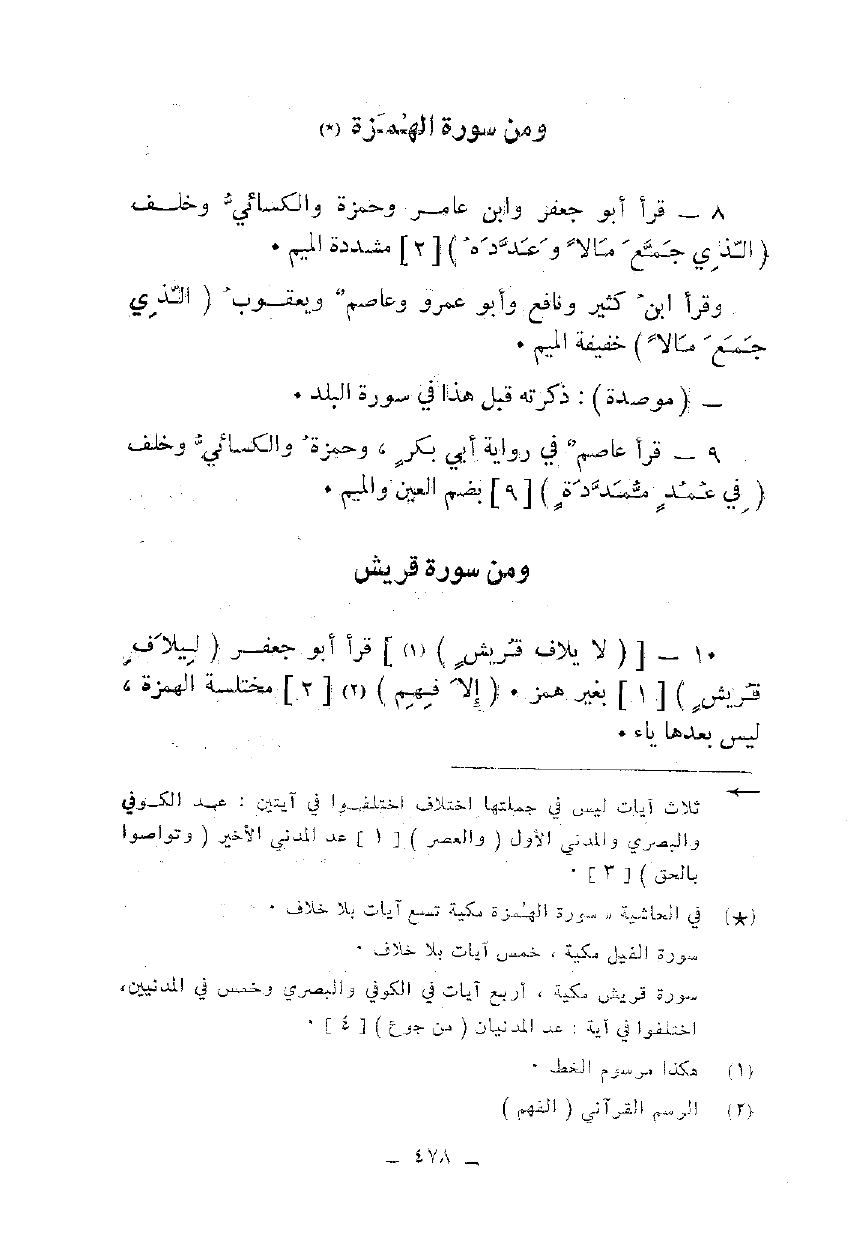 ومن سورة الهُمَزة (*)
٨ — قرأ أبو جعفر وابن عامر وحمزة والكسائيُّ وخلف
( الَّذِي جَمَّعَ مَالاً وَعَدَّدَهُ ) [ ٢ ] مشددة الميم ٠
وقرأ ابنُ كثير ونافع وأبو عمرو وعاصمٌ ويعقوبُ ( الَّذِي
جَمَعَ مَالاً ) خفيفة الميم ٠
— ( موصدة ) : ذكرته قبل هذا في سورة البلد ٠
٩ — قرأ عاصمٌ في رواية أبي بكرٍ ، وحمزةُ والكسائيُّ وخلف
( فِي عُمُدٍ مُمَدَّدَةٍ ) [ ٩ ] بضم العين والميم ٠
ومن سورة قريش
١٠ — [ ( لا يلاف قُريشٍ ) (١) ] قرأ أبو جعفر ( لِيلاَفِ
قُريشٍ ) [ ١ ] بغير همز ٠ ( إِلاَفِهِم ) (٢) [ ٢ ] مختلسة الهمزة ،
ليس بعدها ياء ٠
← ثلاث آيات ليس في جملتها اختلاف اختلفوا في آيتين : عد الكوفي
والبصري والمدني الأول ( والعصر ) [ ١ ] عد المدني الأخير ( وتواصوا
بالحق ) [ ٣ ] ٠
(★) في الحاشية « سورة الهُمزة مكية تسع آيات بلا خلاف ٠
سورة الفيل مكية ، خمس آيات بلا خلاف ٠
سورة قريش مكية ، أربع آيات في الكوفي والبصري وخمس في المدنيين،
اختلفوا في آية : عد المدنيان ( من جوع ) [ ٤ ] ٠
(١) هكذا مرسوم الخط ٠
(٢) الرسم القرآني ( الفهم )
— ٤٧٨ —